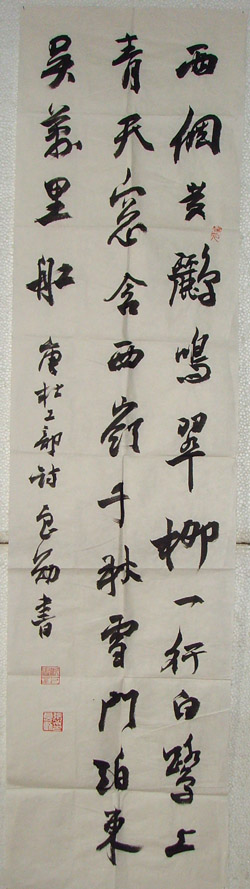 两個黄鸝鳴翠柳一行白鷺上
青天窓含西嶺千秋雪門泊東
吴萬里船
唐杜工部詩 書